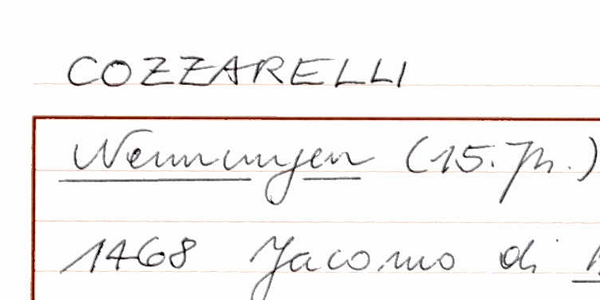 COZZARELLI
Nennungen (15. Jh.)
1468 Jacomo di